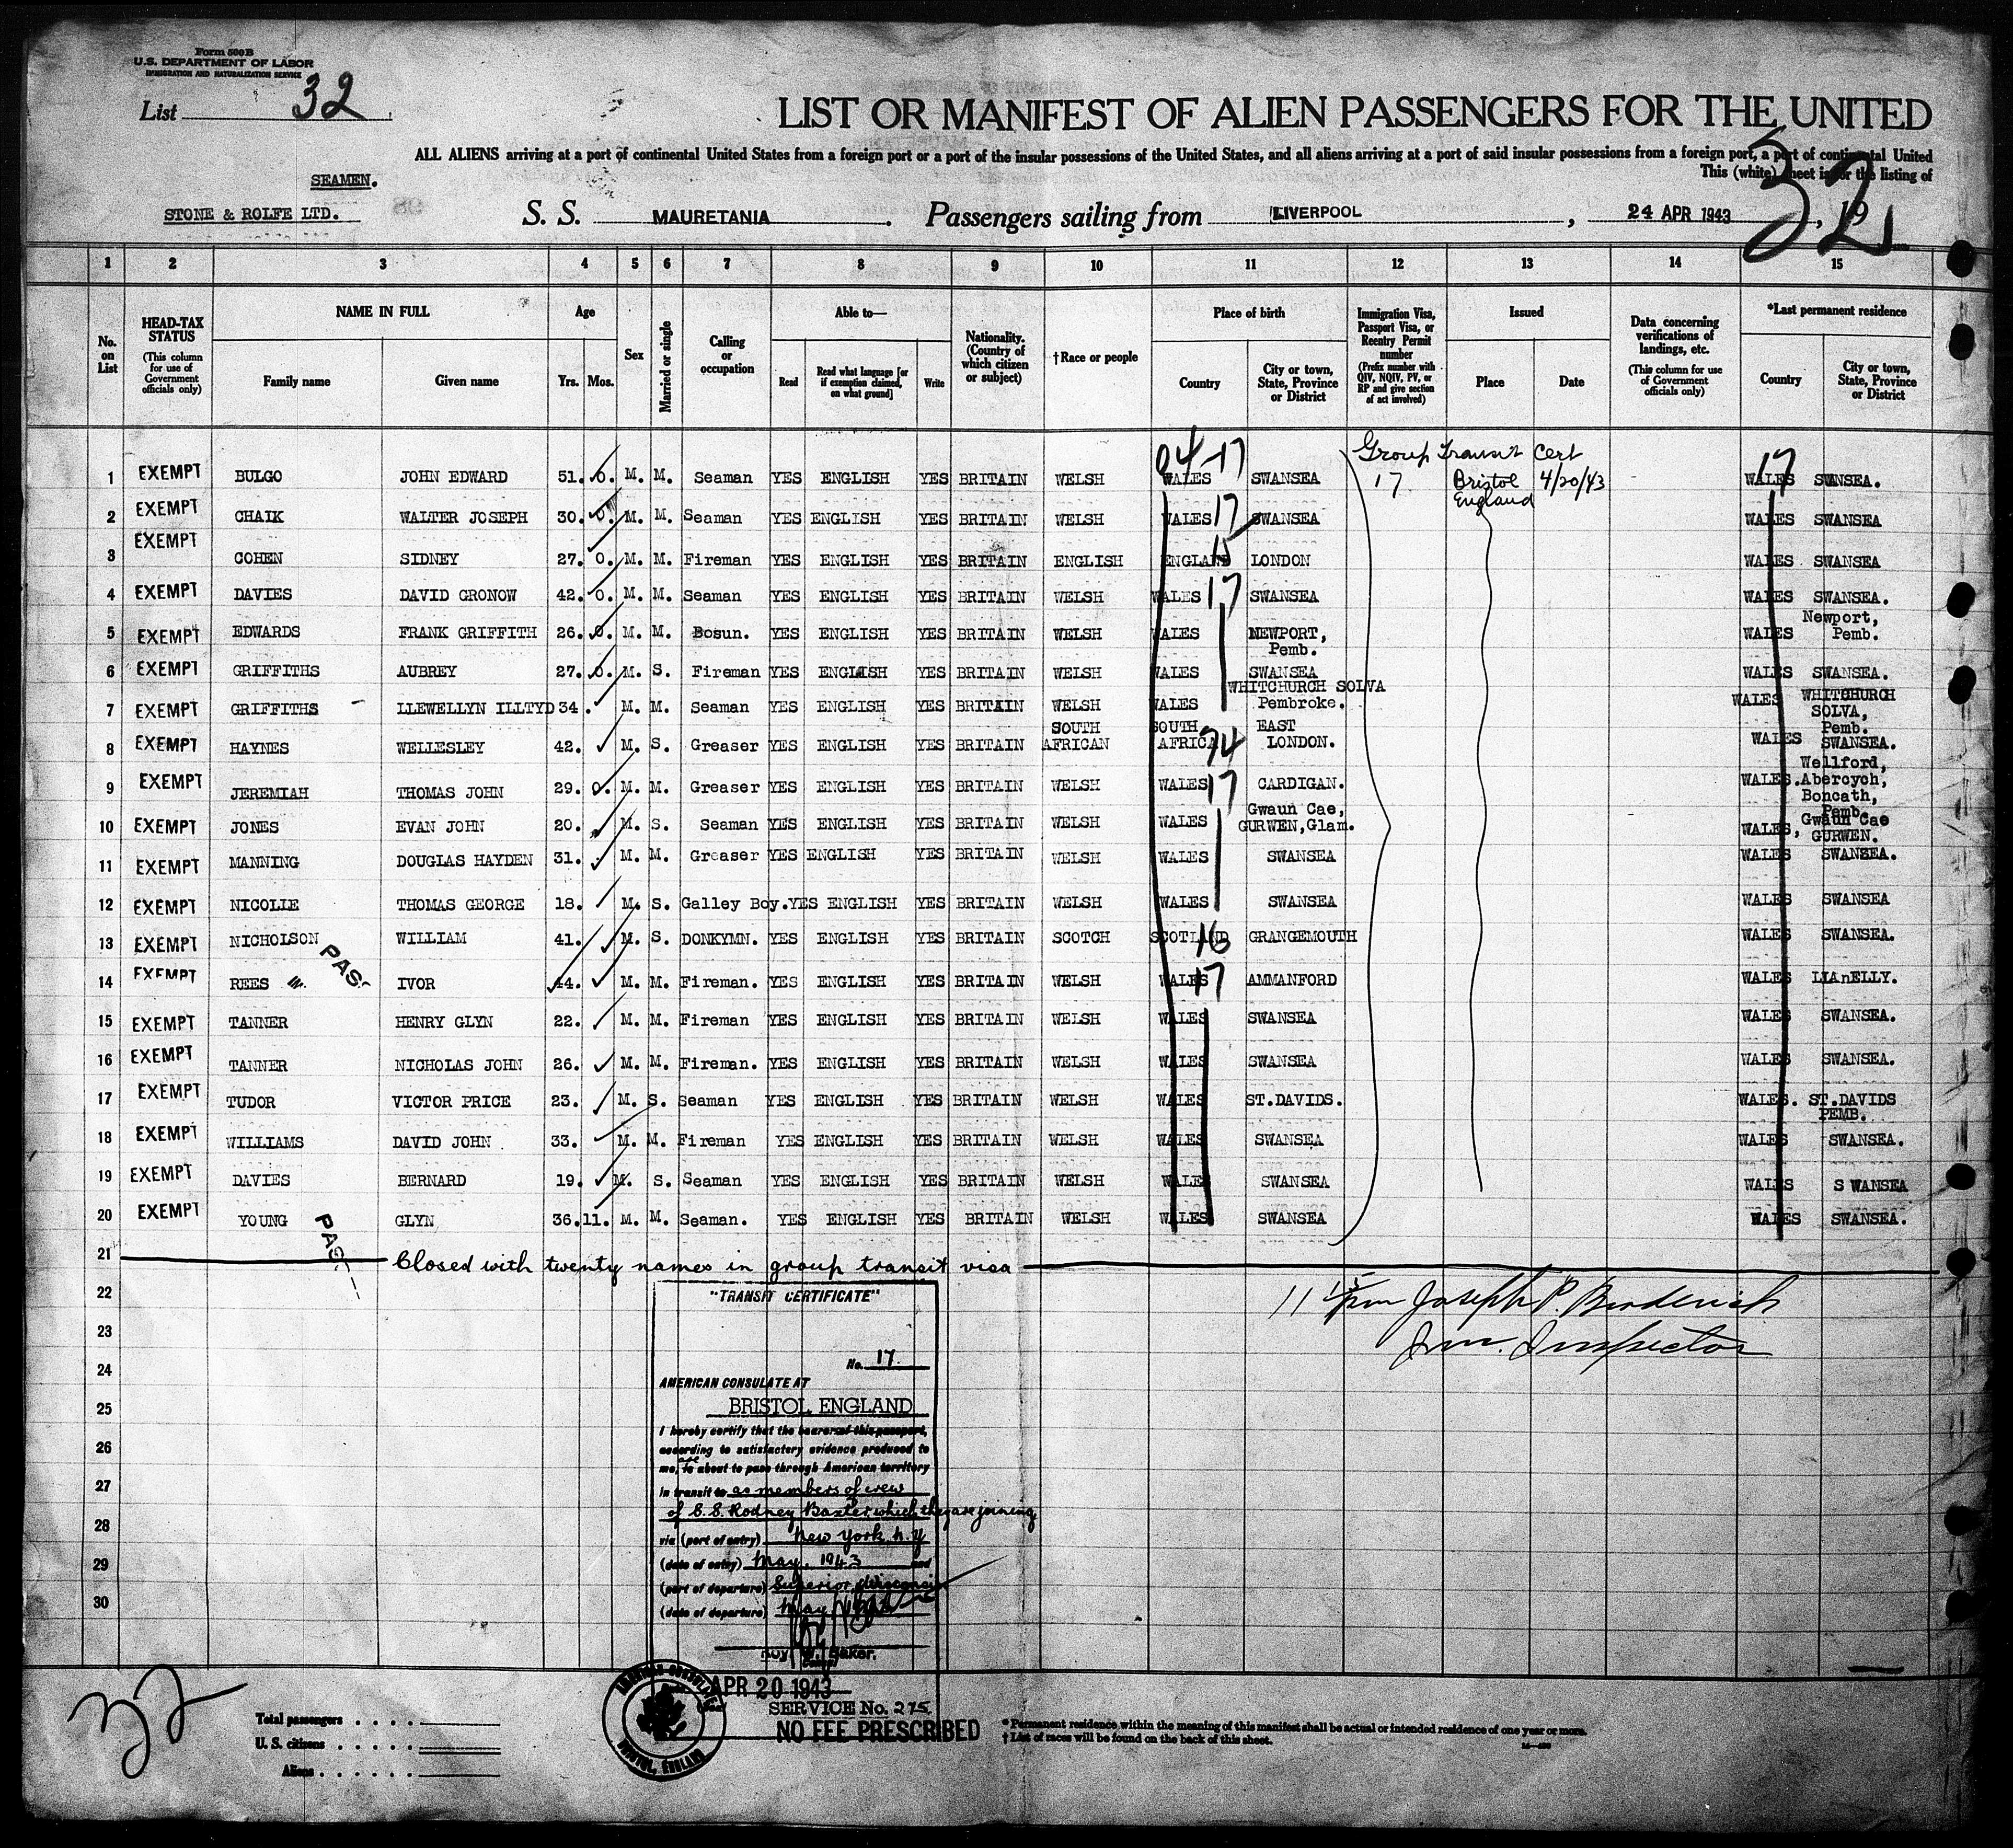 Form 500B
U.S. DEPARTMENT OF LABOR
IMMIGRATION AND NATURALIZATION SERVICE
List 32
LIST OR MANIFEST OF ALIEN PASSENGERS FOR THE UNITED
ALL ALIENS arriving at a port of continental United States from a foreign port or a port of the insular possessions of the United States, and all aliens arriving at a port of said insular possessions from a foreign port, a port of continental United
This (white) sheet is for the listing of
32
SEAMEN.
STONE & ROLFE LTD. S. S. MAURETANIA. Passengers sailing from LIVERPOOL, 24 APR 1943, 19
1 2 3 4 5 6 7 8 9 10 11 12 13 14 15
No. on List
HEAD-TAX STATUS (This column for use of Government officials only)
NAME IN FULL Family name Given name
Age Yrs. Mos.
Sex
Married or single
Calling or occupation
Able to— Read Read what language [or if exemption claimed, on what ground] Write
Nationality. (Country of which citizen or subject)
†Race or people
Place of birth Country City or town, State, Province or District
Immigration Visa, Passport Visa, or Reentry Permit number (Prefix number with QIV, NQIV, PV, or RP and give section of act involved)
Issued Place Date
Data concerning verifications of landings, etc. (This column for use of Government officials only)
*Last permanent residence Country City or town, State, Province or District
04-17 Group Transit Cert 17
1 EXEMPT BULGO JOHN EDWARD 51. 0. M. M. Seaman YES ENGLISH YES BRITAIN WELSH WALES SWANSEA 17 Bristol England 4/20/43 WALES SWANSEA.
2 EXEMPT CHAIK WALTER JOSEPH 30. 0. M. M. Seaman YES ENGLISH YES BRITAIN WELSH WALES 17 SWANSEA WALES SWANSEA
3 EXEMPT COHEN SIDNEY 27. 0. M. M. Fireman YES ENGLISH YES BRITAIN ENGLISH ENGLAND LONDON WALES SWANSEA
4 EXEMPT DAVIES DAVID GRONOW 42. 0. M. M. Seaman YES ENGLISH YES BRITAIN WELSH WALES 17 SWANSEA WALES SWANSEA.
5 EXEMPT EDWARDS FRANK GRIFFITH 26. 0. M. M. Bosun. YES ENGLISH YES BRITAIN WELSH WALES NEWPORT, Pemb. WALES Newport, Pemb.
6 EXEMPT GRIFFITHS AUBREY 27. 0. M. S. Fireman YES ENGLISH YES BRITAIN WELSH WALES SWANSEA WALES SWANSEA.
7 EXEMPT GRIFFITHS LLEWELLYN ILLTYD 34. M. M. Seaman YES ENGLISH YES BRITAIN WELSH WALES WHITCHURCH SOLVA Pembroke. WALES WHITCHURCH SOLVA, Pemb.
8 EXEMPT HAYNES WELLESLEY 42. M. S. Greaser YES ENGLISH YES BRITAIN SOUTH AFRICAN SOUTH AFRICA 74 EAST LONDON. WALES SWANSEA.
9 EXEMPT JEREMIAH THOMAS JOHN 29. 0. M. M. Greaser YES ENGLISH YES BRITAIN WELSH WALES 17 CARDIGAN. WALES. Wellford, Abercych, Boncath, Pemb.
10 EXEMPT JONES EVAN JOHN 20. M. S. Seaman YES ENGLISH YES BRITAIN WELSH WALES Gwaun Cae, GURWEN, Glam. WALES, Gwaun Cae GURWEN.
11 EXEMPT MANNING DOUGLAS HAYDEN 31. M. M. Greaser YES ENGLISH YES BRITAIN WELSH WALES SWANSEA WALES SWANSEA.
12 EXEMPT NICOLLE THOMAS GEORGE 18. M. S. Galley Boy. YES ENGLISH YES BRITAIN WELSH WALES SWANSEA WALES SWANSEA
13 EXEMPT NICHOLSON WILLIAM 41. M. S. DONKYMN. YES ENGLISH YES BRITAIN SCOTCH SCOTLAND 16 GRANGEMOUTH WALES SWANSEA.
14 EXEMPT REES IVOR 44. M. M. Fireman. YES ENGLISH YES BRITAIN WELSH WALES 17 AMMANFORD WALES LLAnELLY.
15 EXEMPT TANNER HENRY GLYN 22. M. M. Fireman YES ENGLISH YES BRITAIN WELSH WALES SWANSEA WALES SWANSEA.
16 EXEMPT TANNER NICHOLAS JOHN 26. M. M. Fireman. YES ENGLISH YES BRITAIN WELSH WALES SWANSEA WALES SWANSEA.
17 EXEMPT TUDOR VICTOR PRICE 23. M. S. Seaman YES ENGLISH YES BRITAIN WELSH WALES ST.DAVIDS. WALES. ST.DAVIDS PEMB.
18 EXEMPT WILLIAMS DAVID JOHN 33. M. M. Fireman YES ENGLISH YES BRITAIN WELSH WALES SWANSEA WALES SWANSEA.
19 EXEMPT DAVIES BERNARD 19. M. S. Seaman YES ENGLISH YES BRITAIN WELSH WALES SWANSEA WALES S WANSEA
20 EXEMPT YOUNG GLYN 36. 11. M. M. Seaman. YES ENGLISH YES BRITAIN WELSH WALES SWANSEA WALES SWANSEA.
21 Closed with twenty names in group transit visa
22 "TRANSIT CERTIFICATE" 11 15 pm Joseph P. Broderick
23 Imm. Inspector
24 No. 17.
AMERICAN CONSULATE AT
25 BRISTOL ENGLAND
I hereby certify that the bearers of this passport,
26 according to satisfactory evidence produced to
me, are about to pass through American territory
27 in transit to as members of crew
of S.S. Rodney Baxter which they are joining
28 via (port of entry) New York N.Y
29 (date of entry) May, 1943 and
(port of departure) Superior, Wisconsin
30 (date of departure) May 1943
Roy W. Baker.
Consul
AMERICAN CONSULATE
BRISTOL, ENGLAND
APR 20 1943
SERVICE No. 275
NO FEE PRESCRIBED
32
Total passengers . . . .
U. S. citizens . . . . .
Aliens . . . . . .
* Permanent residence within the meaning of this manifest shall be actual or intended residence of one year or more.
† List of races will be found on the back of this sheet.